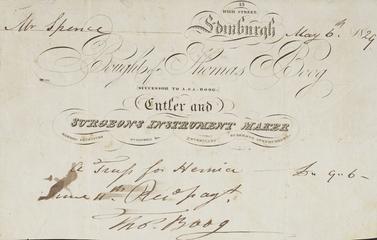 33
HIGH STREET,
Edinburgh
Mr Spence May 6th 1829
Bought of Thomas Boog
SUCCESSOR TO A.&A. BOOG,
Cutler and
SURGEONS INSTRUMENT MAKER
A Truss for Hernia £" 9-6-
June 11th Recd payt
Thos. Boog